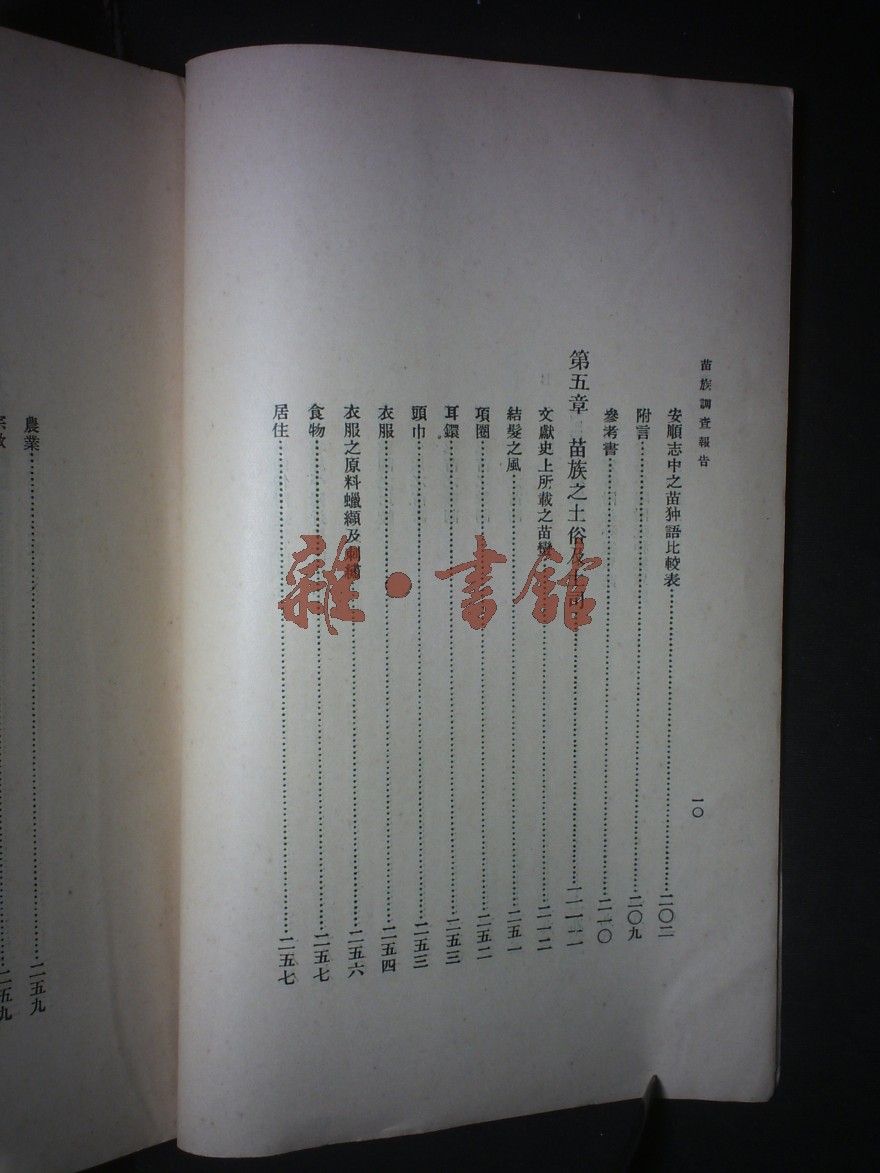 苗族調查報告
一〇
安順志中之苗狆語比較表……二〇二
附言……二〇九
參考書……二一〇
第五章 苗族之土俗及土司……二一二
文獻史上所載之苗蠻……二一二
結髮之風……二五一
項圈……二五二
耳鐶……二五三
頭巾……二五三
衣服……二五四
衣服之原料蠟纈及刺繡……二五六
食物……二五七
居住……二五七
農業……二五九
宗教……二五九
雜·書館